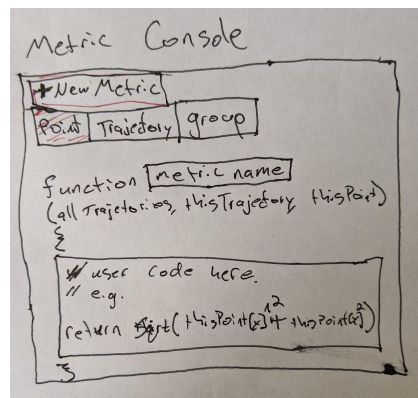 Metric Console
+New Metric
Point Trajectory group
function metric name
(all Trajetories, thisTrajectory, thisPoint)
{
// user code here.
// e.g.
return sqrt(thisPoint[x]^2 + thisPoint[x]^2)
}